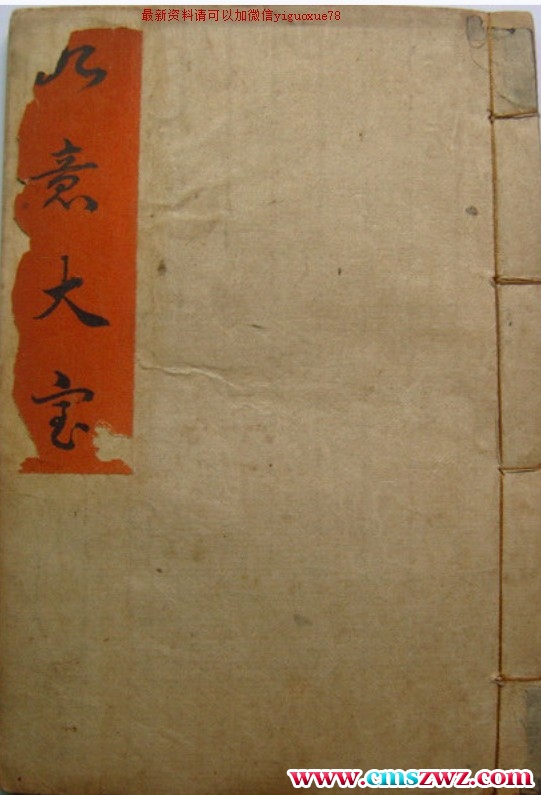 最新资料请可以加微信yiguoxue78
如意大宝
www.cmszwz.com